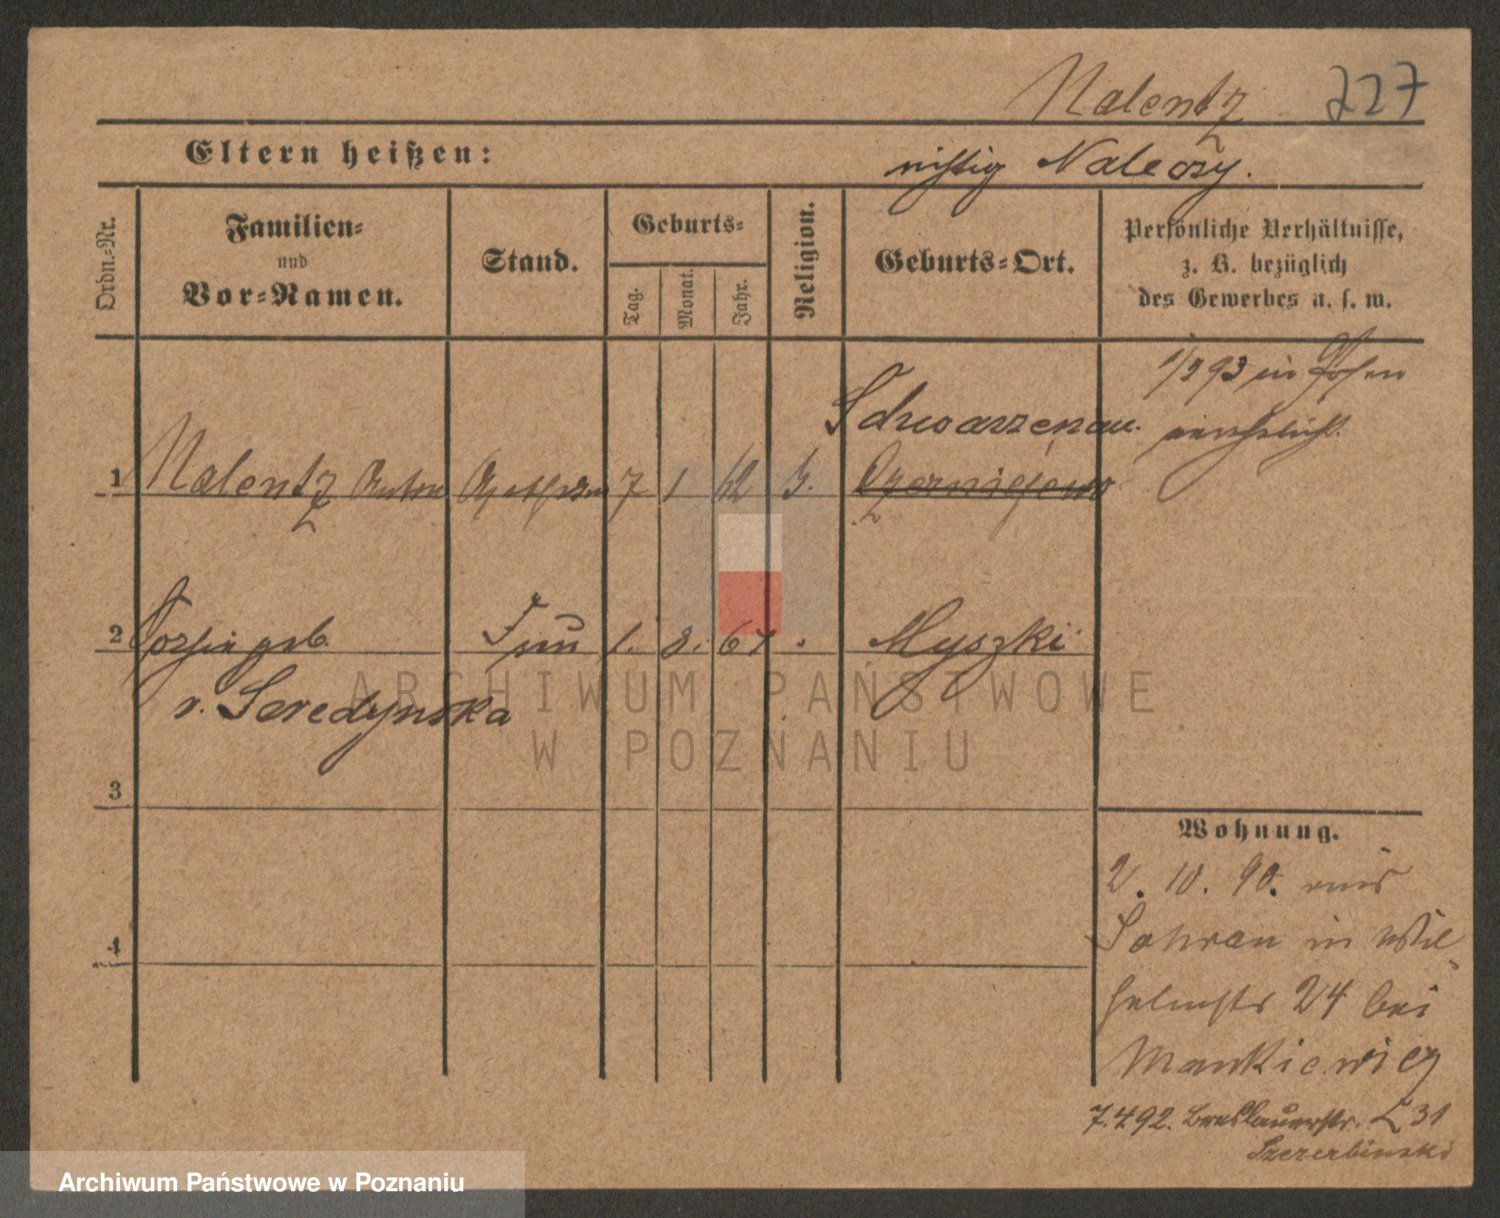 Nalentz 227
Eltern heißen:
richtig Naleczy.
Ordn.-Nr.
Familien-
und
Vor-Namen.
Stand.
Geburts-
Tag.
Monat.
Jahr.
Religion.
Geburts-Ort.
Persönliche Verhältnisse,
z. B. bezüglich
des Gewerbes u. s. w.
1/3 93 in Posen
verehelicht.
Schwarzenau.
1 Nalentz Anton 7 1 62 Czerniejewo
2 Sophie geb. Frau 1. 8. 67 Myszki
v. Seredynska
3
4
Wohnung.
2. 10. 90. aus
Sohrau in Wil-
helmstr 24 bei
Mankiewicz
7.4 92. Breslauerstr. 31
Szczerbinski
ARCHIWUM PAŃSTWOWE
W POZNANIU
Archiwum Państwowe w Poznaniu